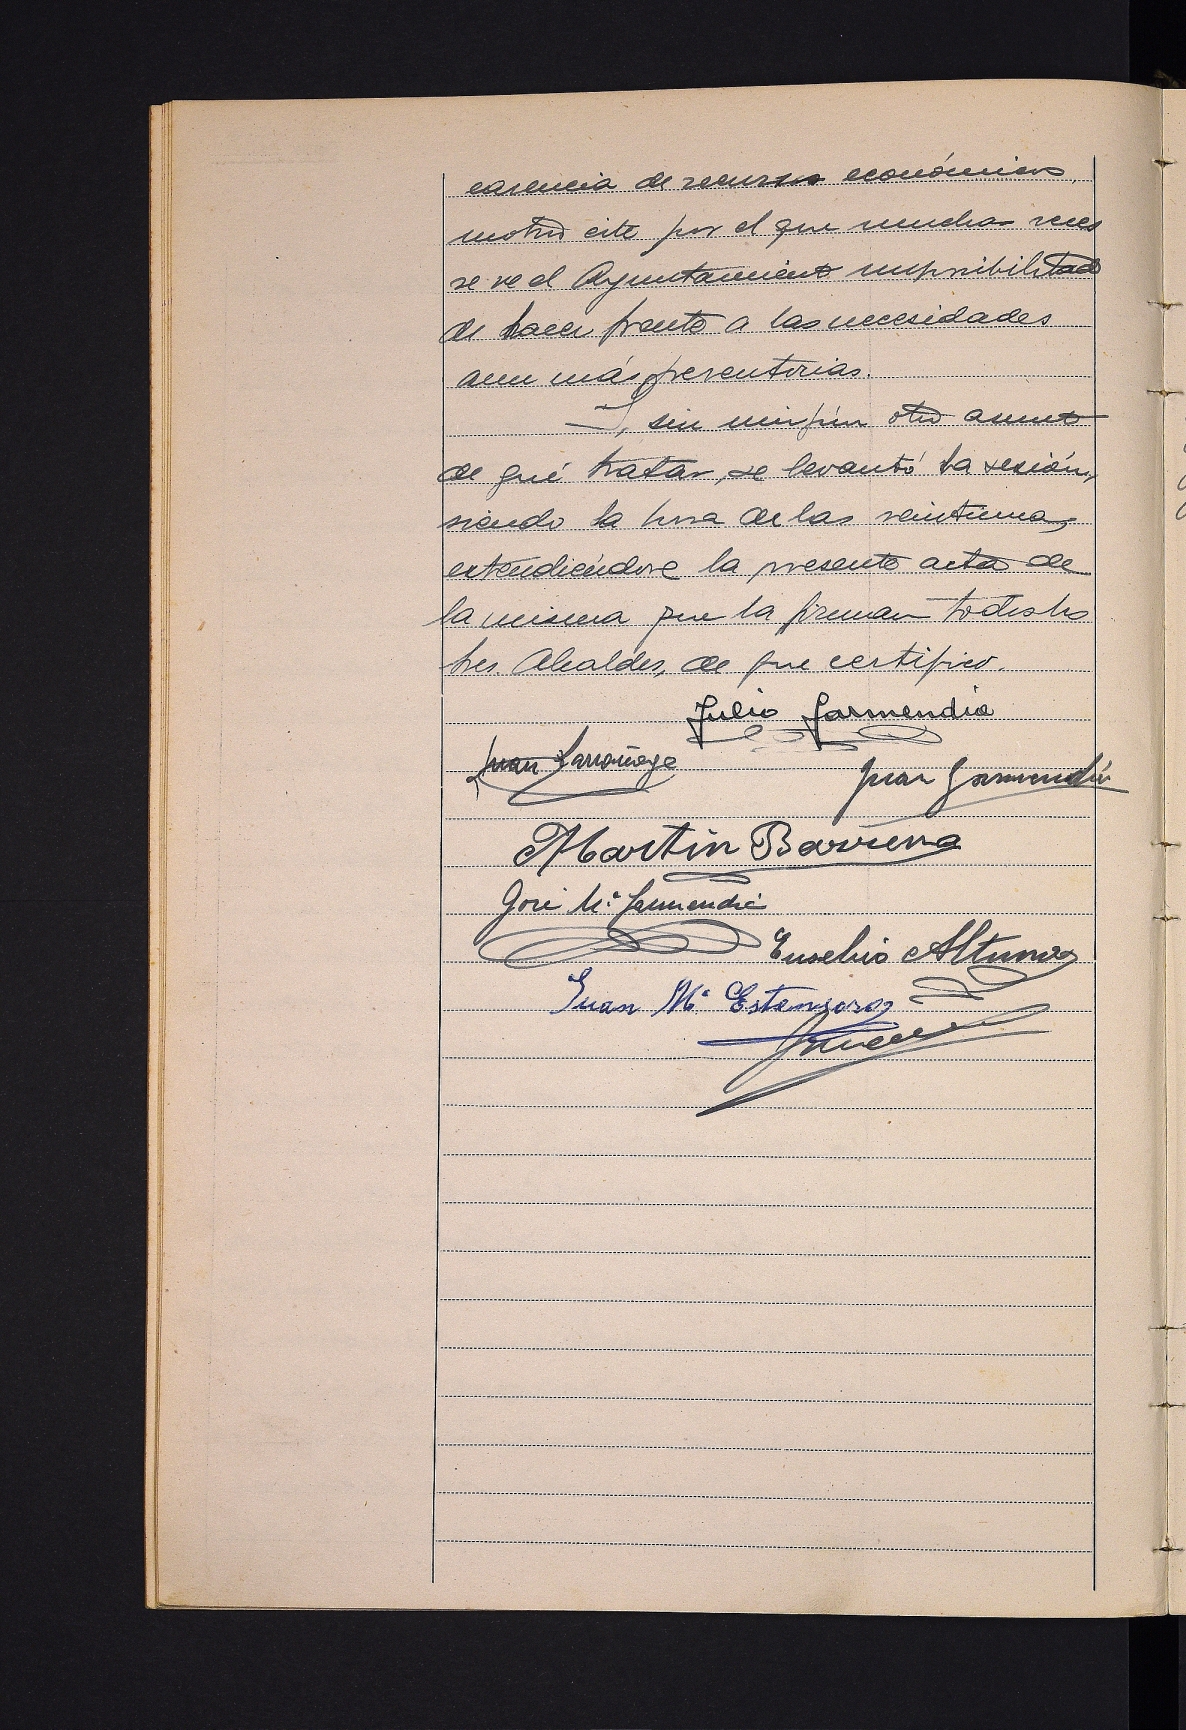 carencia de recursos económicos,
motivo este por el que muchas veces
se ve el Ayuntamiento imposibilitado
de hacer frente a las necesidades
aun más perentorias.
Y, sin ningún otro asunto
de qué tratar, se levantó la sesión,
siendo la hora de las veintiuna,
extendiéndose la presente acta de
la misma que la firman todos los
tres. Alcaldes, de que certifico.
Julio Garmendia
Juan Larrañaga
Juan Garmendia
Martin Barrena
José Mª Garmendia
Eusebio Altuna
Juan Mª Estensoro